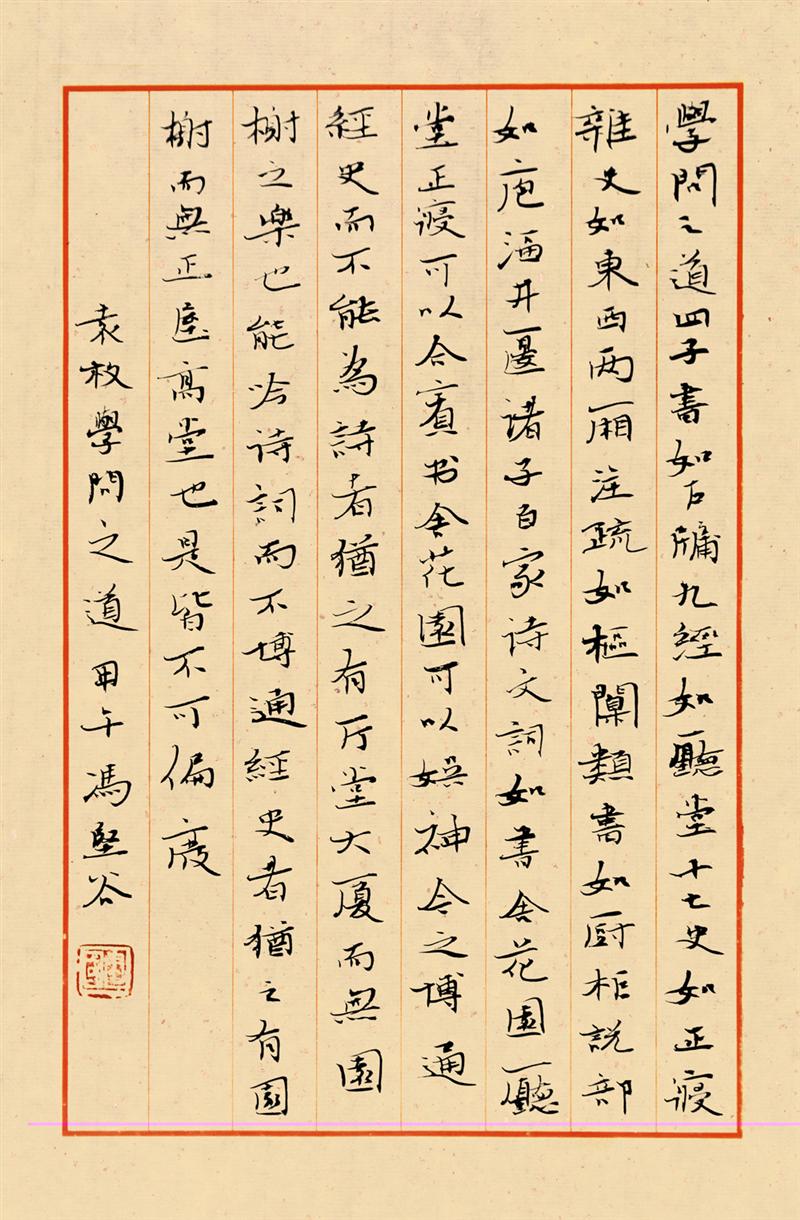 學問之道四子書如戶牖九經如廳堂十七史如正寢
雜史如東西两厢注疏如樞闑類書如厨柜説部
如庖湢井匽诸子百家诗文詞如書舍花園廳
堂正寢可以合賓书舍花園可以娛神今之博通
經史而不能為詩者猶之有厅堂大廈而無園
榭之樂也能吟诗詞而不博通經史者猶之有園
榭而無正屋高堂也是皆不可偏廢
袁枚學問之道 甲午馮堅谷